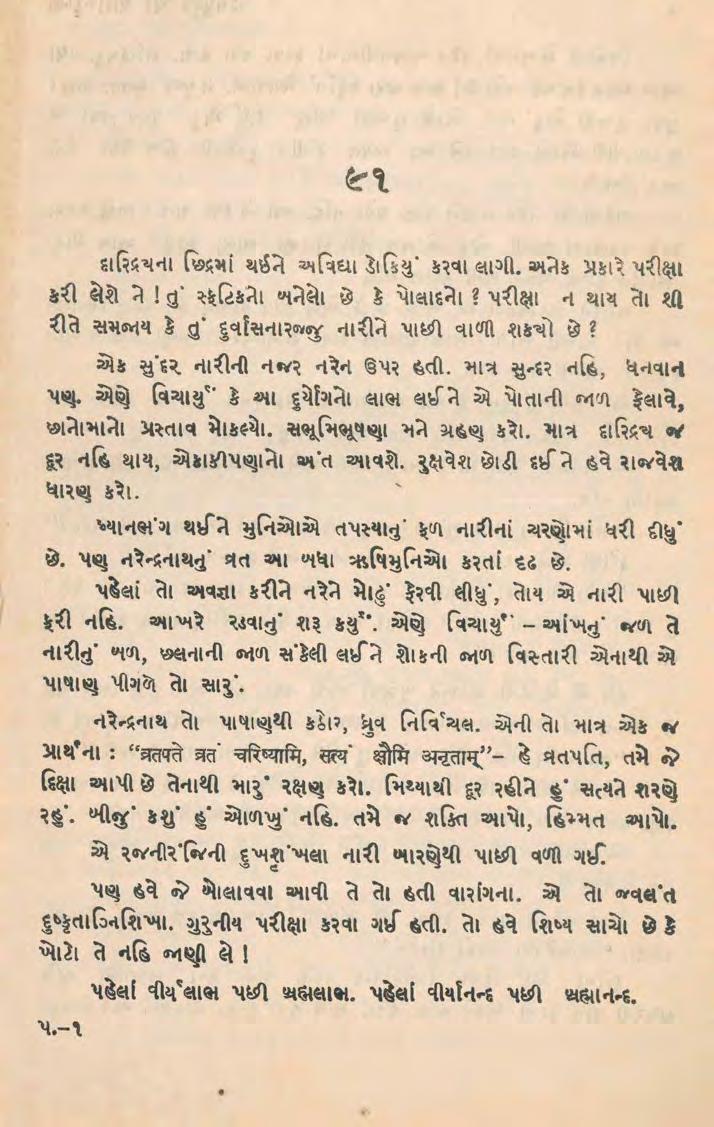 ૯૧
દારિદ્રયના છિદ્રમાં થઈને અવિદ્યા ડોકિયું કરવા લાગી. અનેક પ્રકારે પરીક્ષા
કરી લેશે ને ! તું સ્ફટિકનો બનેલો છે કે પોલાદનો ? પરીક્ષા ન થાય તો શી
રીતે સમજાય કે તું દુર્વાસનારજ્જુ નારીને પાછી વાળી શકયો છે ?
એક સુંદર નારીની નજર નરેન ઉપર હતી. માત્ર સુન્દર નહિ, ધનવાન
પણ. એણે વિચાર્યું કે આ દુર્યોગનો લાભ લઈને એ પોતાની જાળ ફેલાવે,
છાનોમાનો પ્રસ્તાવ મોકલ્યો. સભૂમિભૂષણા મને ગ્રહણ કરો. માત્ર દારિદ્રય જ
દૂર નહિ થાય, એકાકીપણાનો અંત આવશે. રુક્ષવેશ છોડી દઈને હવે રાજવેશ
ધારણ કરો.
ધ્યાનભંગ થઈને મુનિઓએ તપસ્યાનું ફળ નારીનાં ચરણોમાં ધરી દીધું
છે. પણ નરેન્દ્રનાથનું વ્રત આ બધા ઋષિમુનિઓ કરતાં દૃઢ છે.
પહેલાં તો અવજ્ઞા કરીને નરેને મોઢું ફેરવી લીધું, તોય એ નારી પાછી
ફરી નહિ. આખરે રડવાનું શરૂ કર્યું. એણે વિચાર્યું – આંખનું જળ તે
નારીનું બળ, છલનાની જાળ સંકેલી લઈને શોકની જાળ વિસ્તારી એનાથી એ
પાષાણ પીગળે તો સારું.
નરેન્દ્રનાથ તો પાષાણથી કઠોર, ધ્રુવ નિર્વિચલ. એની તો માત્ર એક જ
પ્રાર્થના : “व्रतपते व्रतं चरिष्यामि, सत्यं क्षौमि अनृताम्”– હે વ્રતપતિ, તમે જે
દિક્ષા આપી છે તેનાથી મારું રક્ષણ કરો. મિથ્યાથી દૂર રહીને હું સત્યને શરણે
રહું. બીજું કશું હું ઓળખું નહિ. તમે જ શક્તિ આપો, હિમ્મત આપો.
એ રજનીરંજિની દુખશૃંખલા નારી બારણેથી પાછી વળી ગઈ.
પણ હવે જે બોલાવવા આવી તે તો હતી વારાંગના. એ તો જ્વલંત
દુષ્કૃતાગ્નિશિખા. ગુરુનીય પરીક્ષા કરવા ગઈ હતી. તો હવે શિષ્ય સાચો છે કે
ખોટો તે નહિ જાણી લે !
પહેલાં વીર્યલાભ પછી બ્રહ્મલાભ. પહેલાં વીર્યાનન્દ પછી બ્રહ્માનન્દ.
પ.–૧